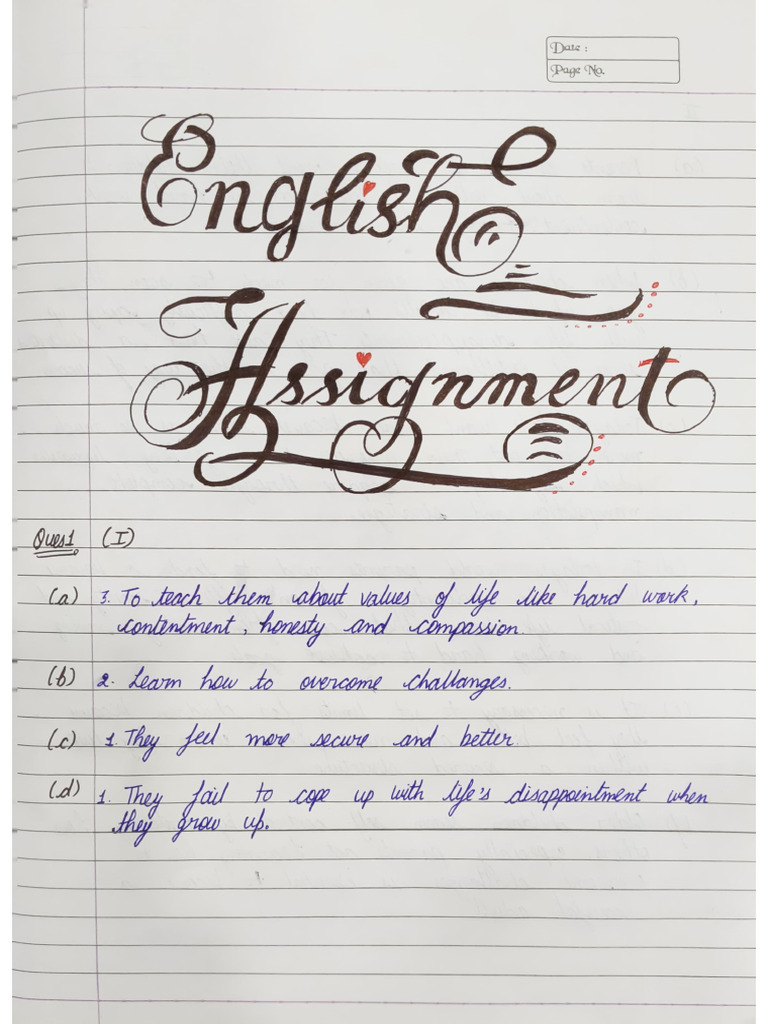 Date :
Page No.
English
Assignment
Ques1 (I)
(a) 3. To teach them about values of life like hard work,
contentment, honesty and compassion.
(b) 2. Learn how to overcome challanges.
(c) 1. They feel more secure and better.
(d) 1. They fail to cope up with life's disappointment when
they grow up.